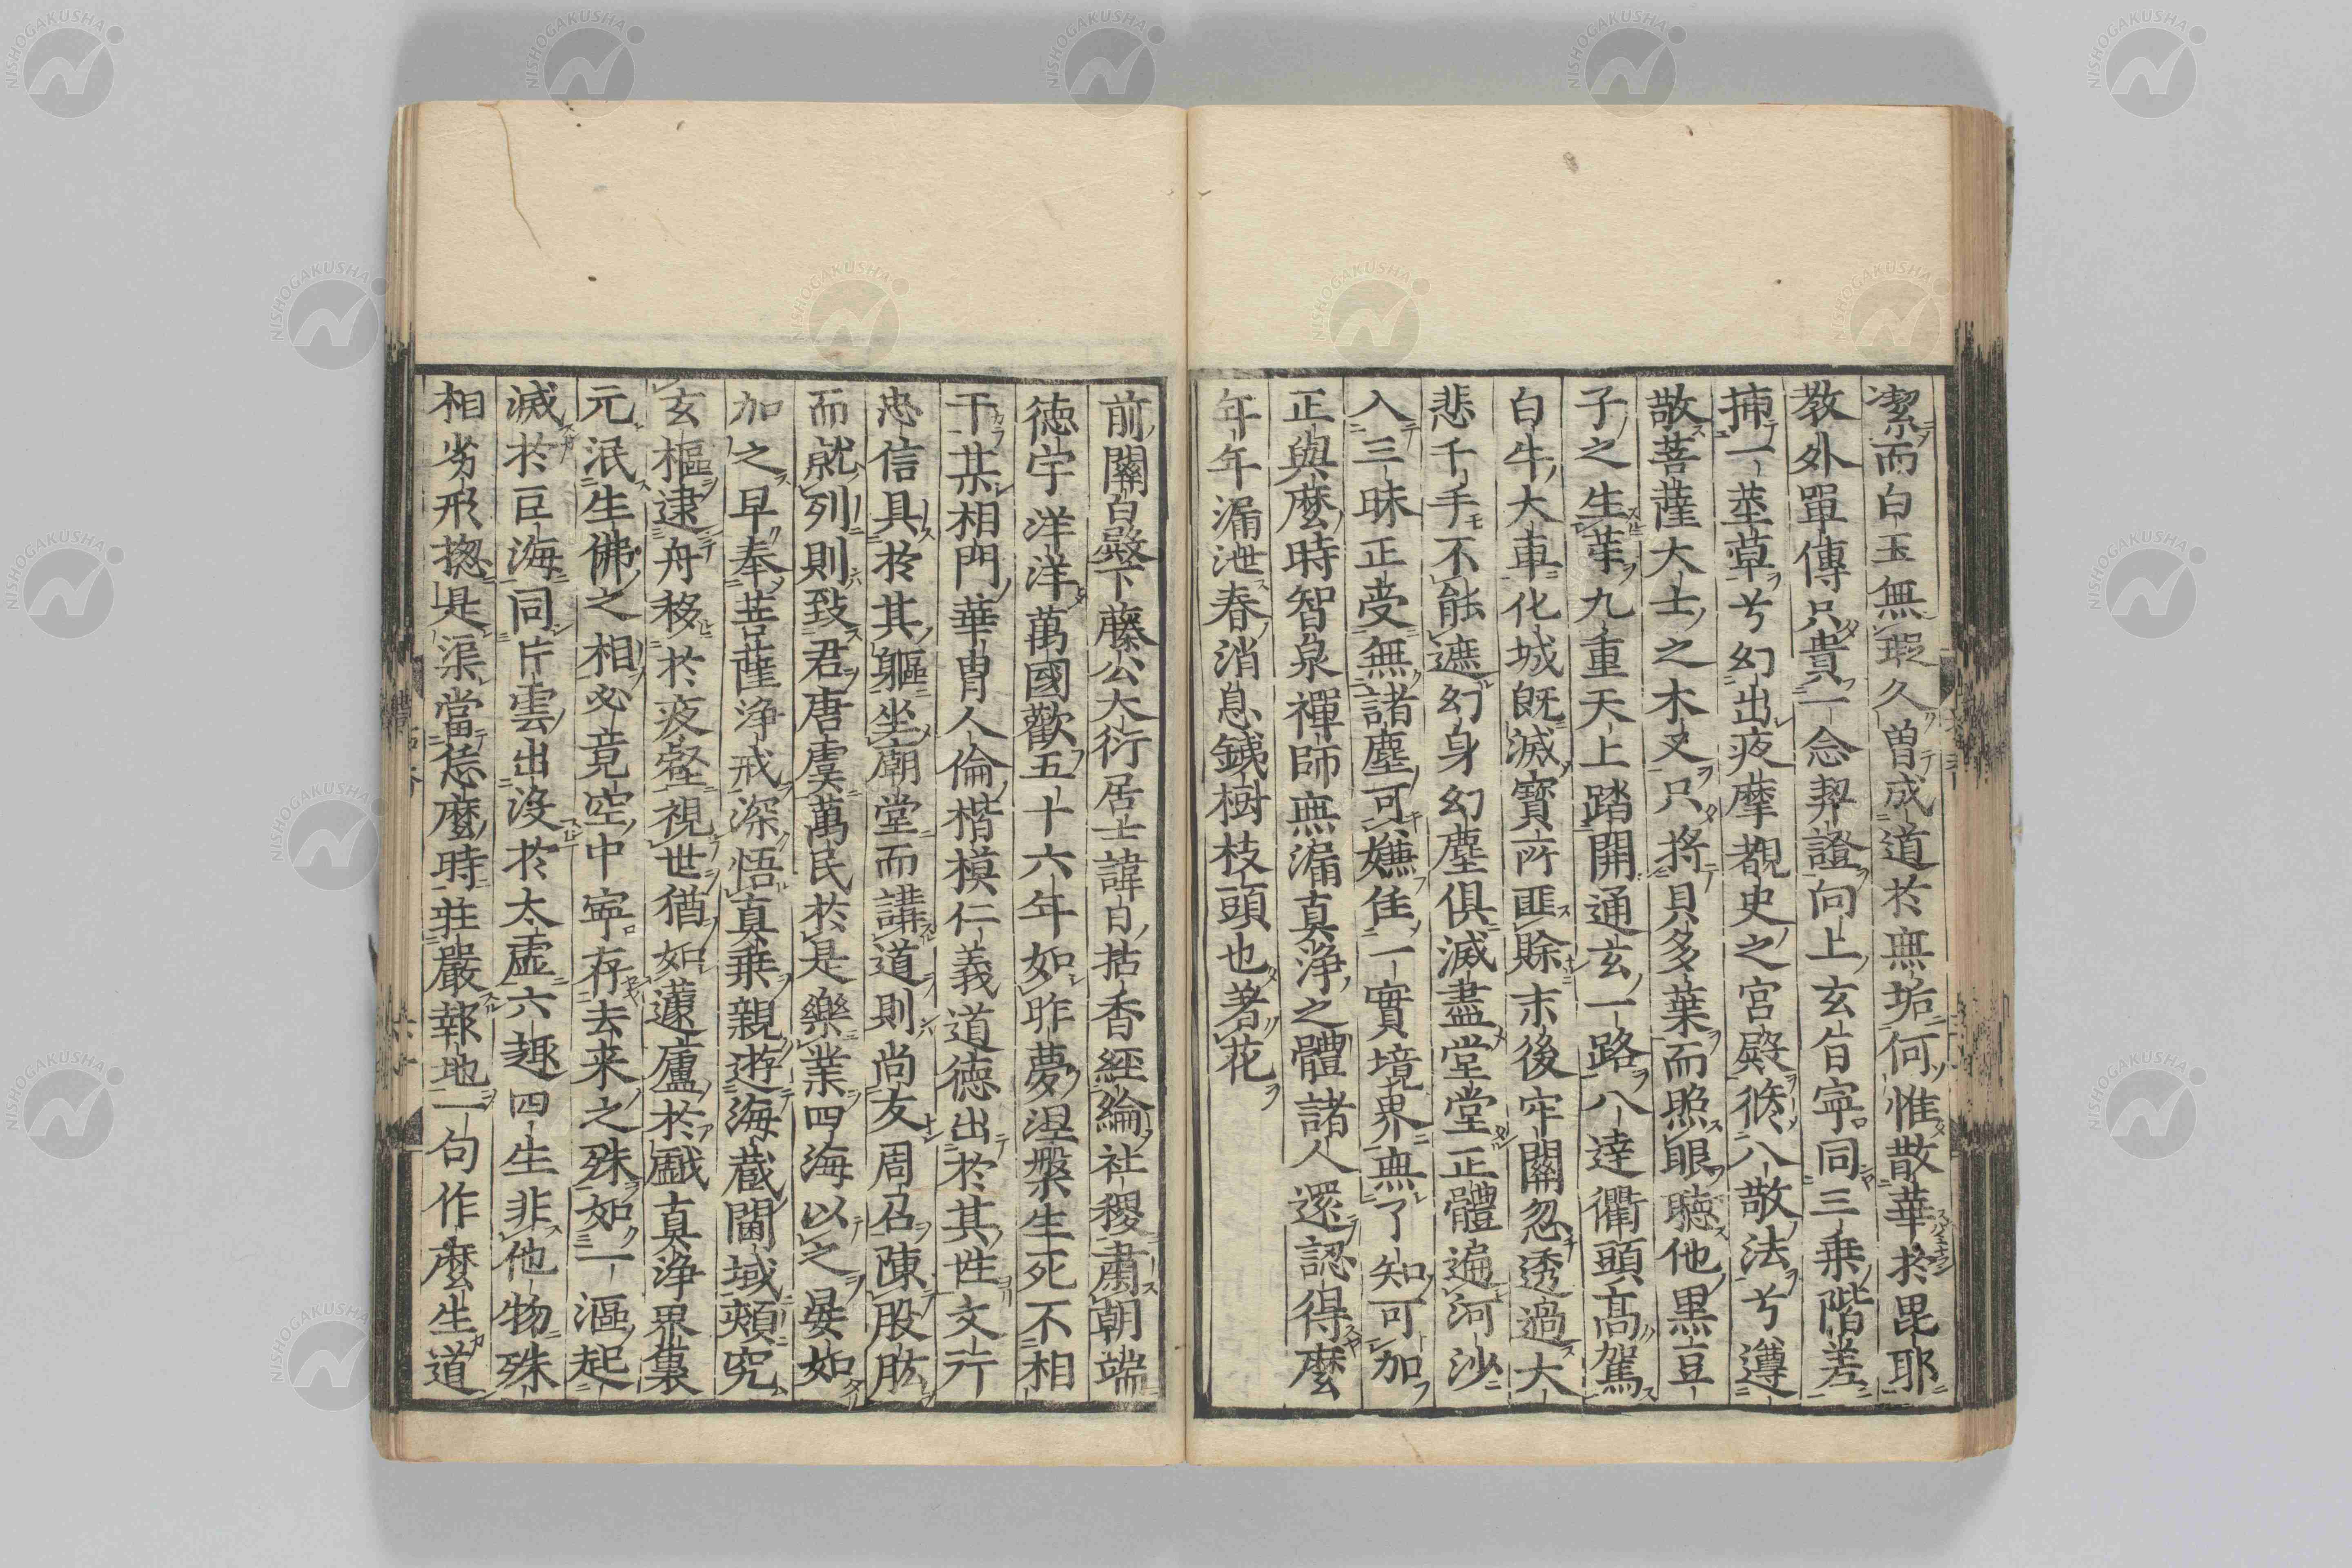 潔而白玉無瑕久曽成道於無垢何惟散華於毘耶
教外單傳只貴一念契證向上玄旨寧同三乗階差
捕一莖草兮幻出夜摩覩史之宮殿修八敬法兮遵
敬菩薩大士之木叉只将貝多葉而照眼聴他黒豆
子之生芽九重天上踏開通玄一路八達衢頭高駕
白牛大車化城既滅寶所匪賒末後牢關忽透過大
悲千手不能遮幻身幻塵倶滅盡堂堂正體遍河沙
入三昧正受無諸塵可嫌隹一實境界無了知可加
正與麼時智泉禪師無漏真浄之體諸人還認得麼
年年漏泄春消息銕樹枝頭也著花
前關白殿下藤公大衍居士諱日拈香經綸社稷肅朝端
徳宇洋洋萬國歡五十六年如昨夢涅槃生死不相
干某相門華胄人倫楷模仁義道徳出於其性文行
忠信具於其軀坐廟堂而講道則尚友周召陳股肱
而就列則致君唐虞萬民於是樂業四海以之晏如
加之早奉菩薩浄戒深悟真乗親遊海蔵閫域頬究
玄樞逮舟移於夜壑視世猶如蘧廬於戯真浄界裏
元泯生佛之相必竟空中寧存去来之殊如一漚起
滅於巨海同片雲出没於太虚六趣四生非他物殊
相劣形揔是渠當恁麼時荘嚴報地一句作麼生道